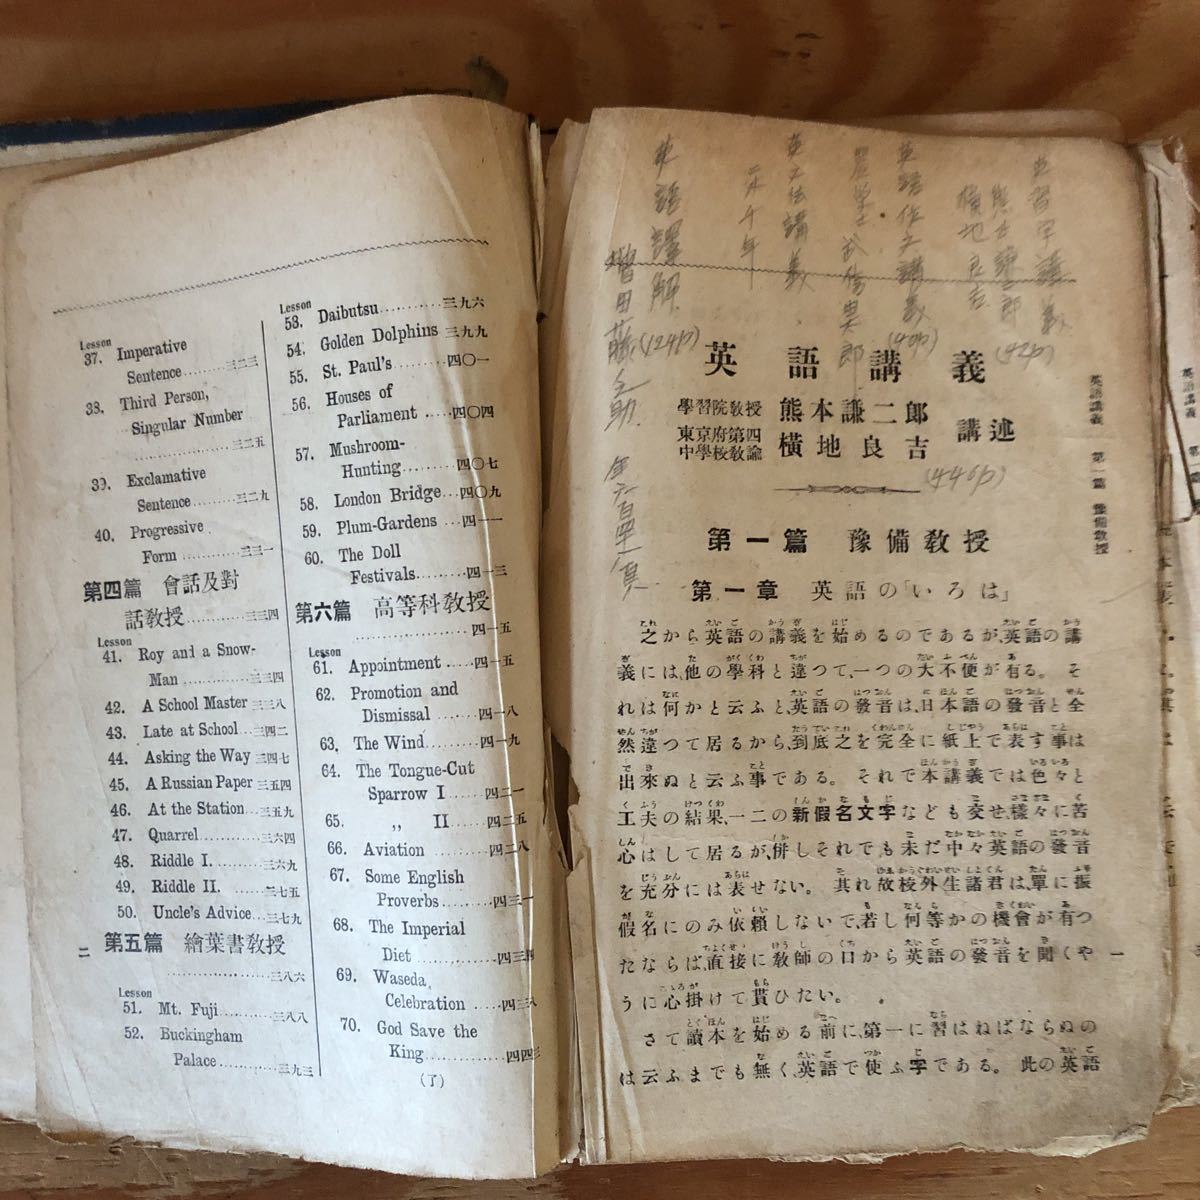 Lesson
37. Imperative
Sentence........三二三
38. Third Person,
Singular Number
......三二五
39. Exclamative
Sentence.....三二九
40. Progressive
Form.........三三一
第四篇 會話及對
話敎授.........三三四
Lesson
41. Roy and a Snow-
Man.........三三四
42. A School Master...三三八
43. Late at School...三四二
44. Asking the Way...三四七
45. A Russian Paper...三五四
46. At the Station...三五九
47. Quarrel.........三六四
48. Riddle I.........三六九
49. Riddle II.......三七五
50. Uncle's Advice...三七九
第五篇 繪葉書敎授
..................三八六
Lesson
51. Mt. Fuji.........三八八
52. Buckingham
Palace............三九三
二
Lesson
53. Daibutsu..........三九六
54. Golden Dolphins 三九九
55. St. Paul's.........四〇一
56. Houses of
Parliament....四〇四
57. Mushroom-
Hunting.........四〇七
58. London Bridge...四〇九
59. Plum-Gardens....四一一
60. The Doll
Festivals.........四一三
第六篇 高等科敎授
..................四一五
Lesson
61. Appointment....四一五
62. Promotion and
Dismissal......四一八
63. The Wind.......四一九
64. The Tongue-Cut
Sparrow I......四二一
65. „ II......四二五
66. Aviation.........四二八
67. Some English
Proverbs.......四三一
68. The Imperial
Diet............四三四
69. Waseda,
Celebration.....四三八
70. God Save the
King............四四三
(了)
英語講義 第一篇 豫備敎授
英語講義
學習院敎授 熊本謙二郎
東京府第四中學校敎諭 橫地良吉 講述
(446p)
第一篇 豫備敎授
第一章 英語の「いろは」
之から英語の講義を始めるのであるが、英語の講
義には、他の學科と違つて、一つの大不便が有る。そ
れは何かと云ふと、英語の發音は、日本語の發音と全
然違つて居るから、到底之を完全に紙上で表す事は
出來ぬと云ふ事である。それで本講義では色々と
工夫の結果、一二の新假名文字なども交せ、樣々に苦
心はして居るが、倂しそれでも未だ中々英語の發音
を充分には表せない。其れ故校外生諸君は、單に振
假名にのみ依賴しないで、若し何等かの機會が有つ
たならば、直接に敎師の口から英語の發音を聞くや
うに心掛けて貰ひたい。
さて讀本を始める前に、第一に習はねばならぬの
は云ふまでも無く、英語で使ふ字である。此の英語
一
英語譯解
(124p)
英文法講義
英語作文講義
(40p)
英習字講義
(42p)
橫地良吉